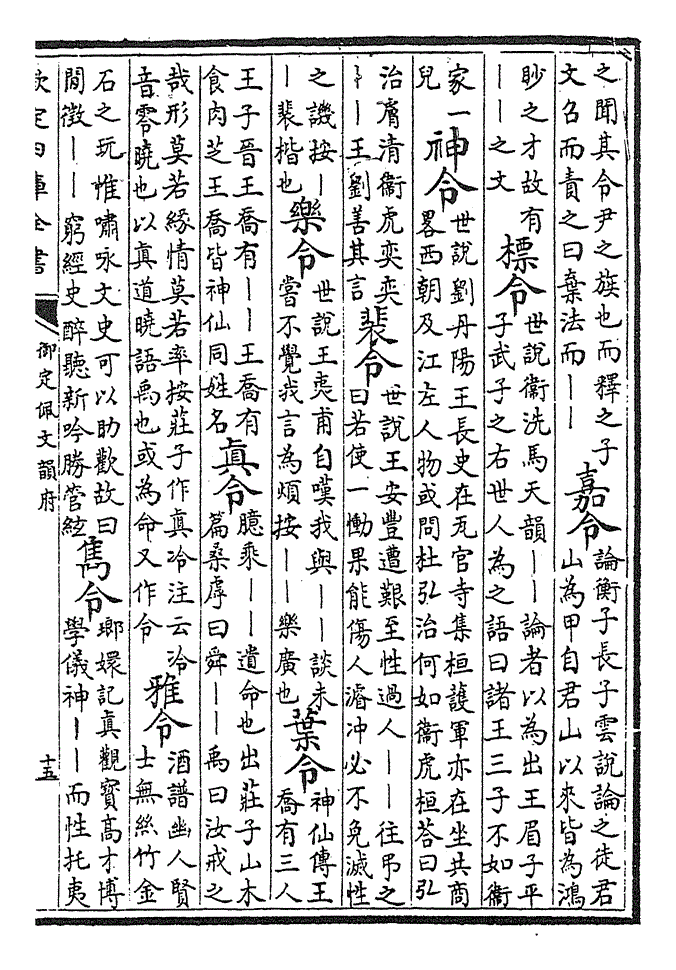 之聞其令尹之族也而釋之子文召而責之曰棄法而――嘉令論衡子長子雲說論之徒君山為甲自君山以來皆為鴻
眇之才故有――之文標令世說衛洗馬天韻――論者以為出王眉子平子武子之右世人為之語曰諸王三子不如衛
家一兒神令世說劉丹陽王長史在瓦官寺集桓護軍亦在坐共商畧西朝及江左人物或問杜弘治何如衞虎桓荅曰弘
治膚清衞虎奕奕――王劉善其言裴令世說王安豐遭艱至性過人――往弔之曰若使一慟果能傷人濬冲必不免滅性
之譏按――裴楷也樂令世說王夷甫自嘆我與――談未嘗不覺我言為煩按――樂廣也葉令神仙傳王喬有三人
王子晉王喬有――王喬有食肉芝王喬皆神仙同姓名眞令臆乘――遺命也出莊子山木篇桑雽曰舜――禹曰汝戒之
哉形莫若緣情莫若率按莊子作眞冷注云冷音零曉也以眞道曉語禹也或為命又作令雅令酒譜幽人賢士無絲竹金
石之玩惟嘯咏文史可以助歡故曰閒徵――窮經史醉聽新吟勝管絃雋令瑯嬛記眞觀寶高才博學儀神――而性托夷
欽定四庫全書
御定佩文韻府
十五